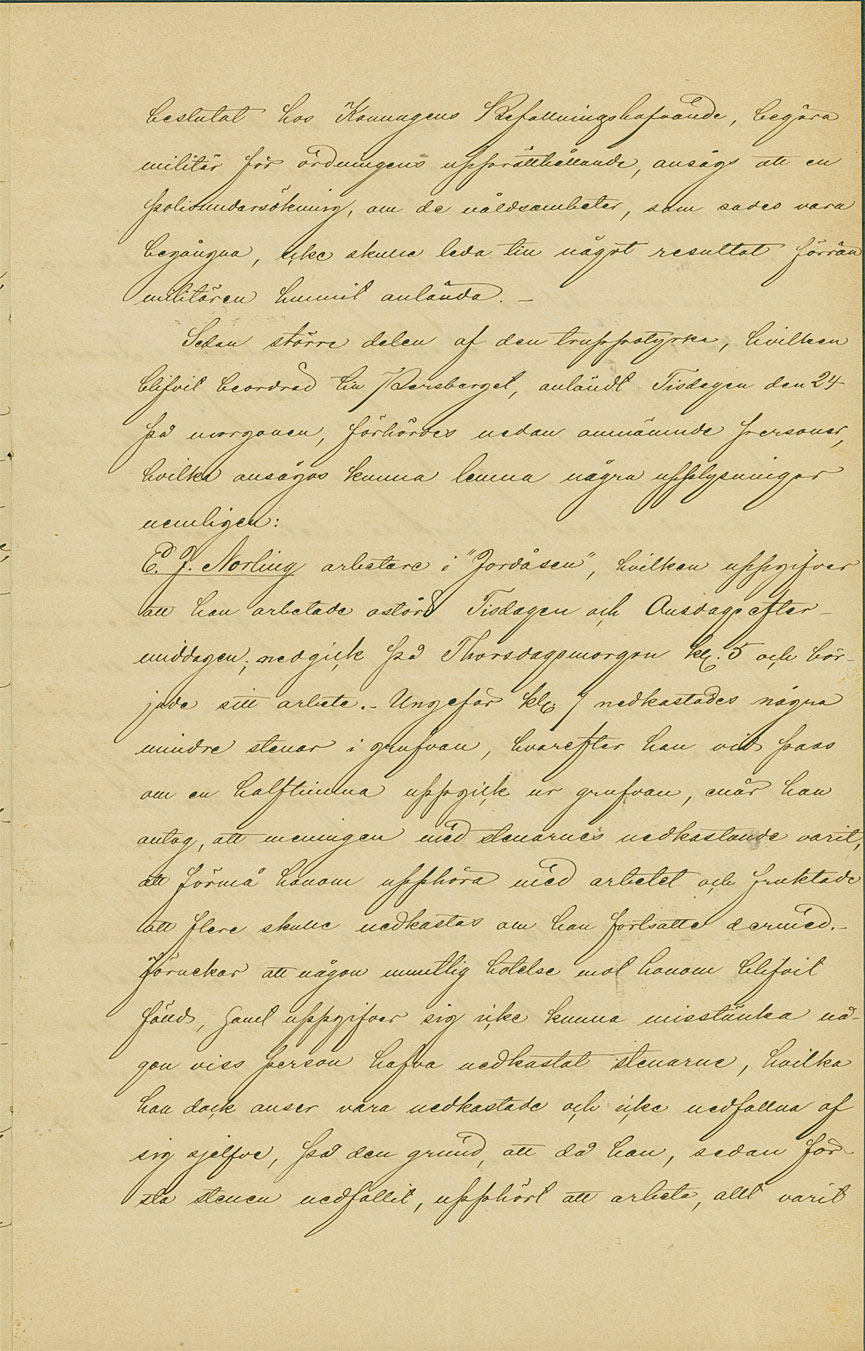 beslutat hos Konungens Befallningshafvande, begära
militär för ordningens upprätthållande, ansågs att en
polisundersökning, om de våldsamheter, som sades vara
begångna, icke skulle leda till något resultat förrän
militären hunnit anlända. –
Sedan större delen af den truppstyrka, hvilken
blifvit beordrad till Persberget, anländt Tisdagen den 24
på morgonen, förhördes nedan omnämnde personer,
hvilka ansågos kunna lemna några upplysningar
nemligen:
E. J. Norling arbetare i "Jordåsen", hvilken uppgifver
att han arbetade ostörd Tisdagen och Onsdags efter-
middagen; nedgick på Thorsdagsmorgon kl. 5 och bör-
jade sitt arbete. – Ungefär kl. 7 nedkastades några
mindre stenar i grufvan, hvarefter han vid pass
om en halftimma uppgick ur grufvan, enär han
antog, att meningen med stenarnes nedkastande varit,
att förmå honom upphöra med arbetet och fruktade
att flere skulle nedkastas om han fortsatte dermed. –
Förnekar att någon muntlig hotelse mot honom blifvit
fäld, samt uppgifver sig icke kunna misstänka nå-
gon viss person hafva nedkastat stenarne, hvilka
han dock anser vara nedkastade och icke nedfallna af
sig sjelfve, på den grund, att då han, sedan för-
sta stenen nedfallit, upphört att arbeta, allt varit